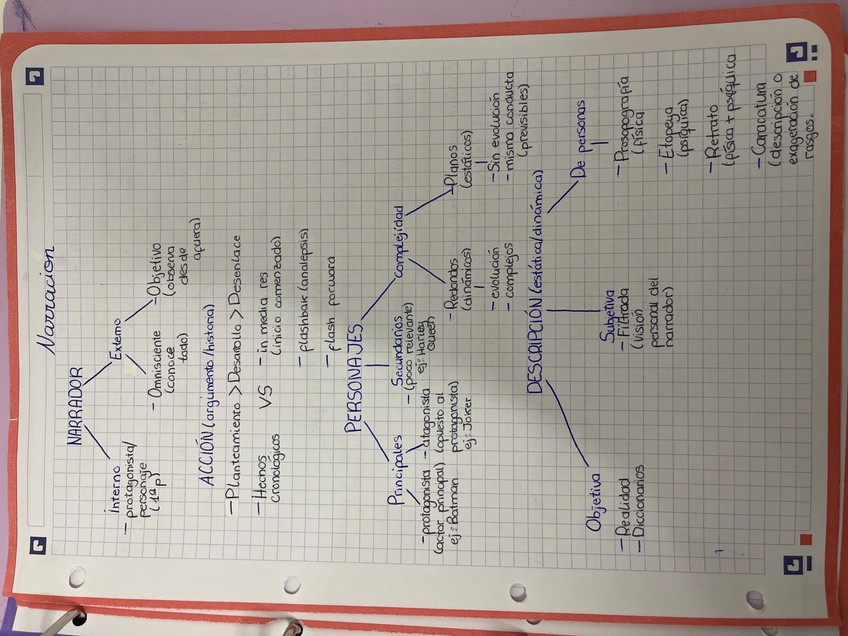 Narracion
NARRADOR
Interno
- protagonista/
personaje
(1ª p)
Externo
- Omnisciente
(conoce
todo)
- Objetivo
(observa
desde
afuera)
ACCIÓN (argumento/historia)
- Planteamiento > Desarollo > Desenlace
- Hechos
cronologicos
VS
- in media res
(inicio comenzado)
- flashbak (analepsis)
- flash forward
PERSONAJES
Principales
- protagonista
(actor principal)
ej: Batman
- atagonista
(opuesto al
protagonista)
ej: Joker
Secundarios
- (poco relevante)
ej: Harley
Queen
Complejidad
- Redondos
(dinámicos)
- evolución
- complejos
- Planos
(estáticos)
- Sin evolución
- misma conducta
(previsibles)
DESCRIPCIÓN (estática/dinámica)
Objetiva
- Realidad
- Diccionarios
Subjetiva
- Filtrada
(visión
personal del
narrador)
De personas
- Prosopografía
(física)
- Etopeya
(psíquica)
- Retrato
(física + psíquica)
- Caracatura
(descripción o
exageración de
rasgos.